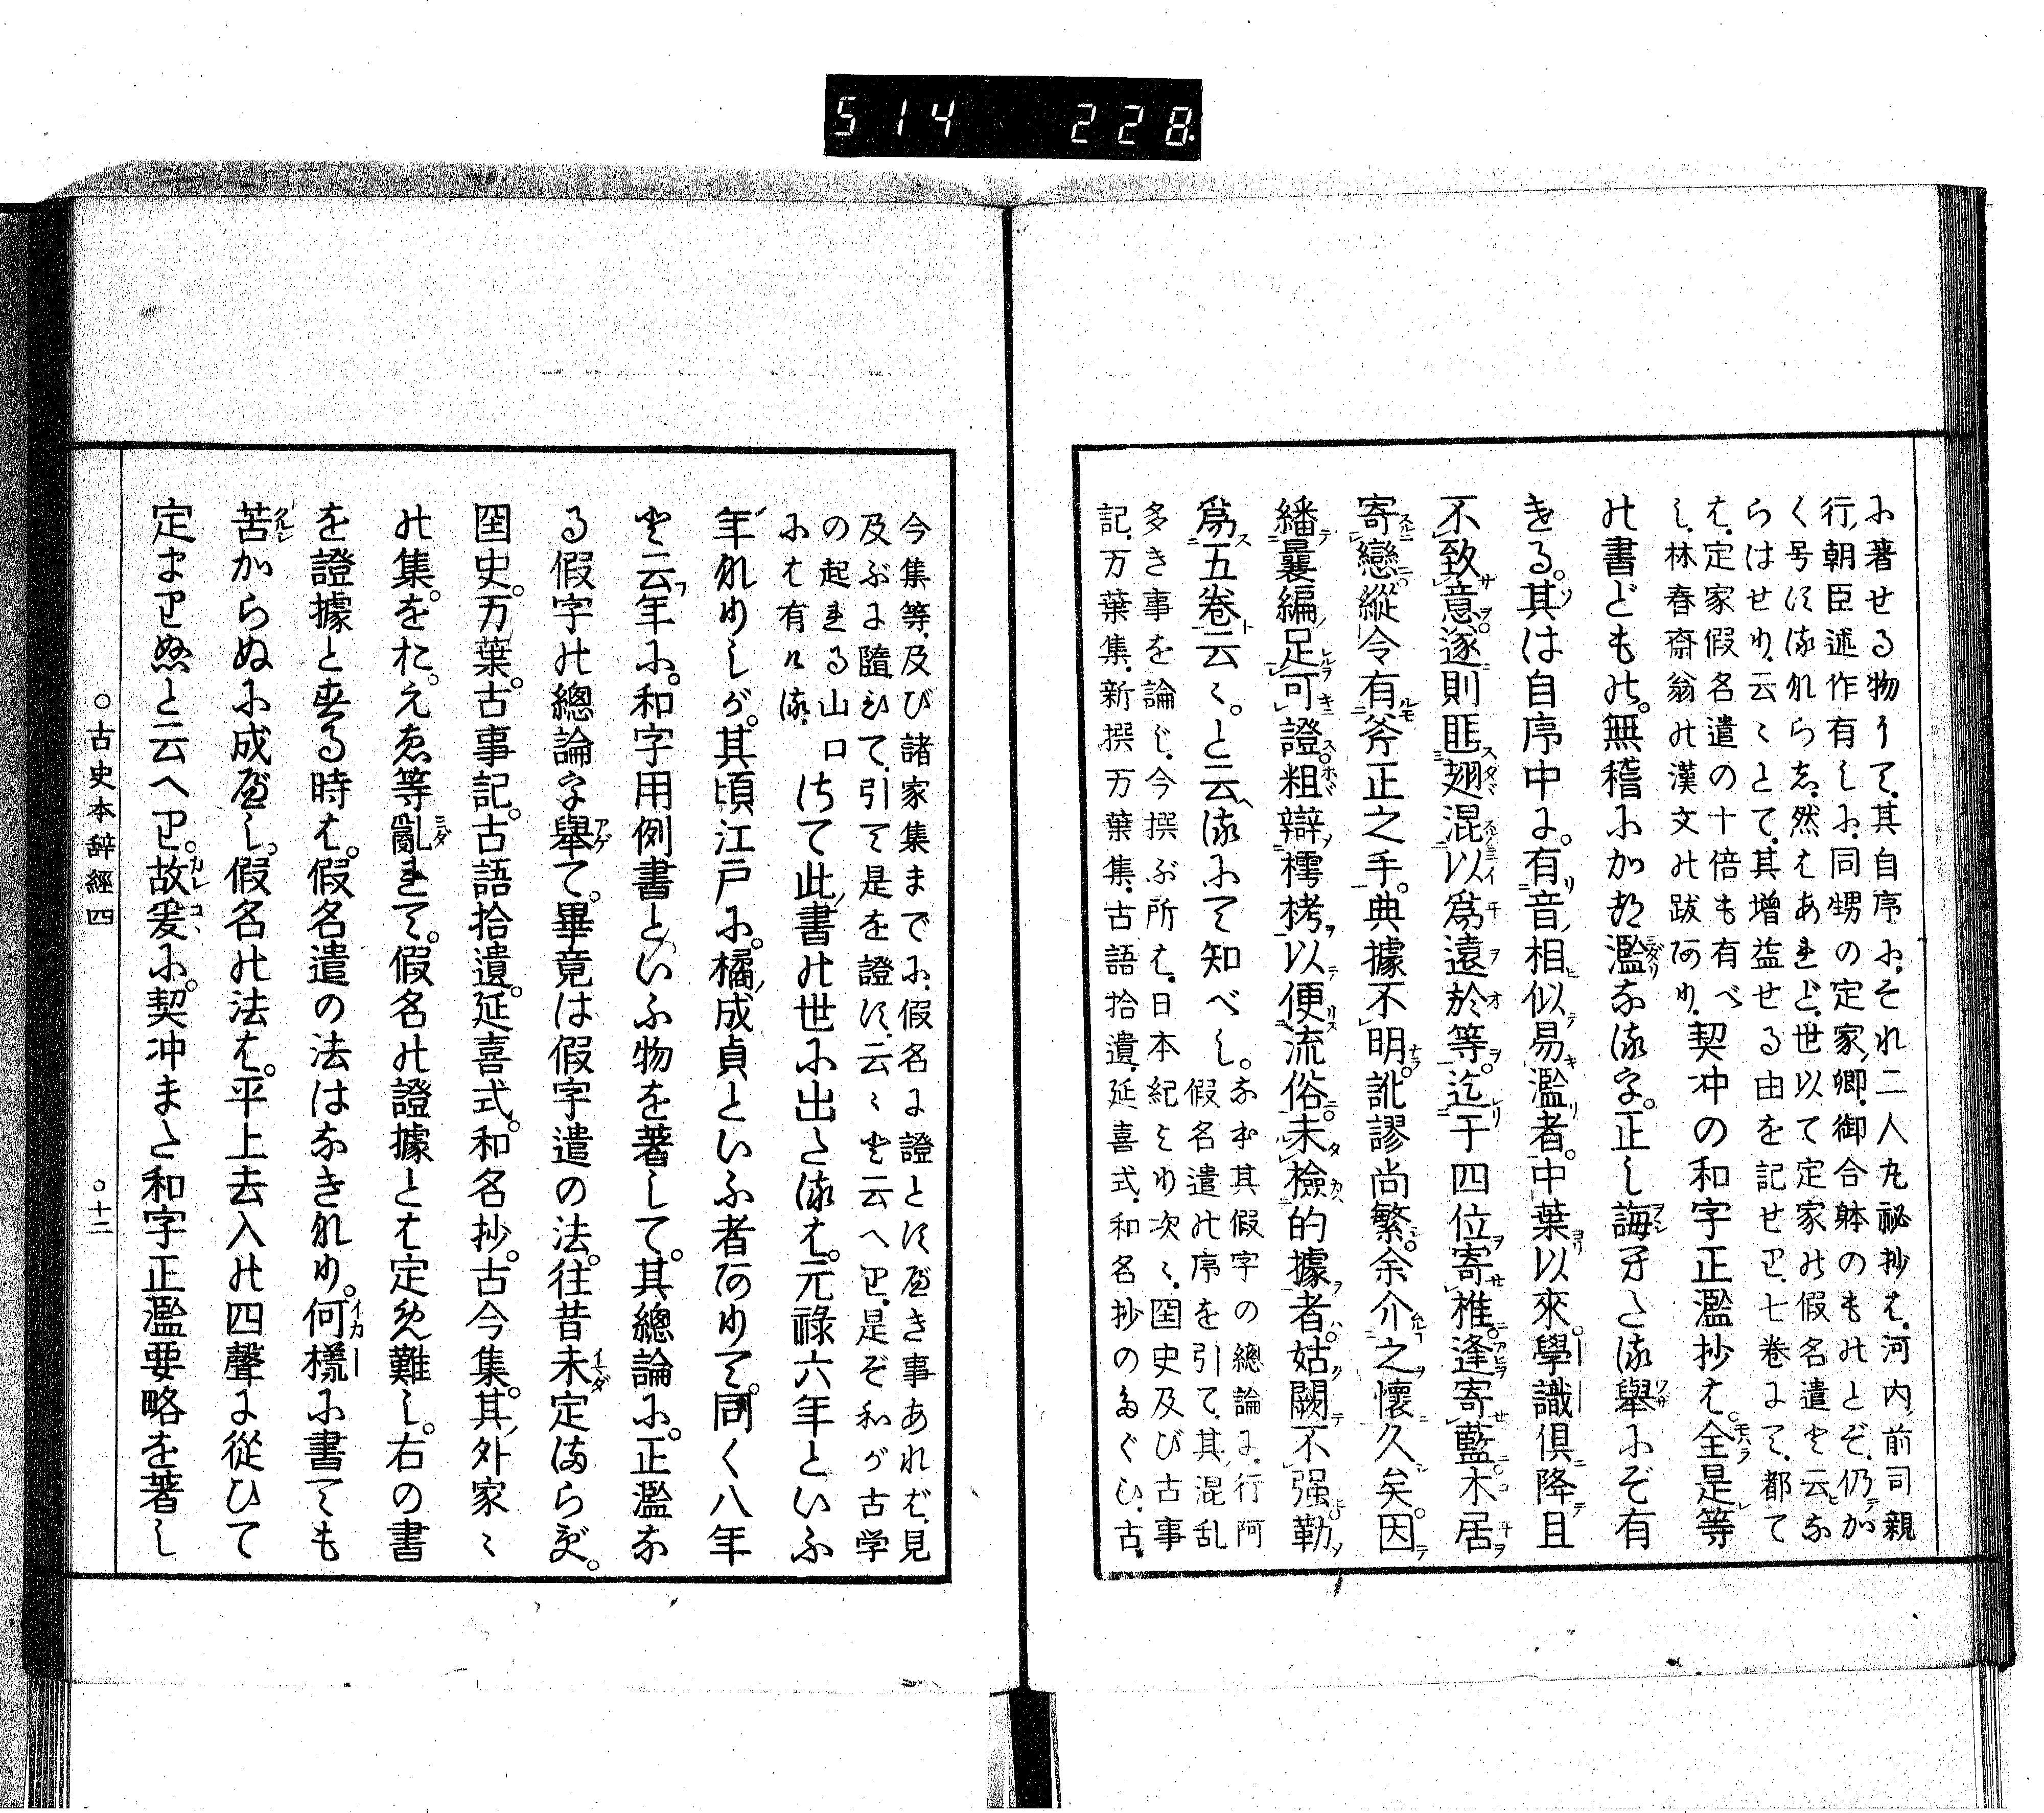 514 228
に著せる物にて、其自序に、それ二人丸祕抄は、河内前司親
行朝臣述作有しに、同甥の定家卿、御合躰のものとぞ、仍か
く号すなれらし、然はあれど、世以て定家の假名遣と云な
らはせり、云々とて、其増益せる由を記せり、七巻にて、都て
は、定家假名遣の十倍も有べ
し、林春齋翁の漢文の跋あり、契冲の和字正濫抄は、全是等
の書どもの、無稽にかく濫なるを、正し誨へたる擧にぞ有
きる。其は自序中に。有音相似易濫者。中葉以來。學識倶降且
不致意。遂則匪翅混以爲遠於等。迄于四位寄椎。逢寄藍。木居
寄戀。縱令有斧正之手。典據不明。訛謬尚繁。余介之懷久矣。因
繙曩編足可證。粗辯樗栲以便流俗。未檢的據者。姑闕不强勒
爲五巻云々。と云るにて知べし。なお其假字の總論に、行阿
假名遣の序を引て、其混乱
多き事を論じ、今撰ぶ所は、日本紀より次々、国史及び古事
記、万葉集、新撰万葉集、古語拾遺、延喜式、和名抄のたぐひ、古
今集等、及び諸家集までに、假名に證とすべき事あれば、見
及ぶに隨ひて、引て是を證す、云々と云へり、是ぞ和が古学
の起れる山口
には有ける、さて此書の世に出たるは。元祿六年といふ
年なりしが。其頃江戸に。橘成貞といふ者ありて。同く八年
と云年に。和字用例書といふ物を著して。其總論に。正濫な
る假字の總論を擧て。畢竟は假字遣の法。往昔未定まらず。
国史。万葉。古事記。古語拾遺。延喜式。和名抄。古今集。其外家々
の集。をお。えゑ等亂れて。假名の證據とは定め難し。右の書
を證據と來る時は。假名遣の法はなきなり。何樣に書ても
苦からぬに成べし。假名の法は。平上去入の四聲に從ひて
定まりぬと云へり。故爰に。契冲また和字正濫要略を著し
○古史本辭經四 ○十二